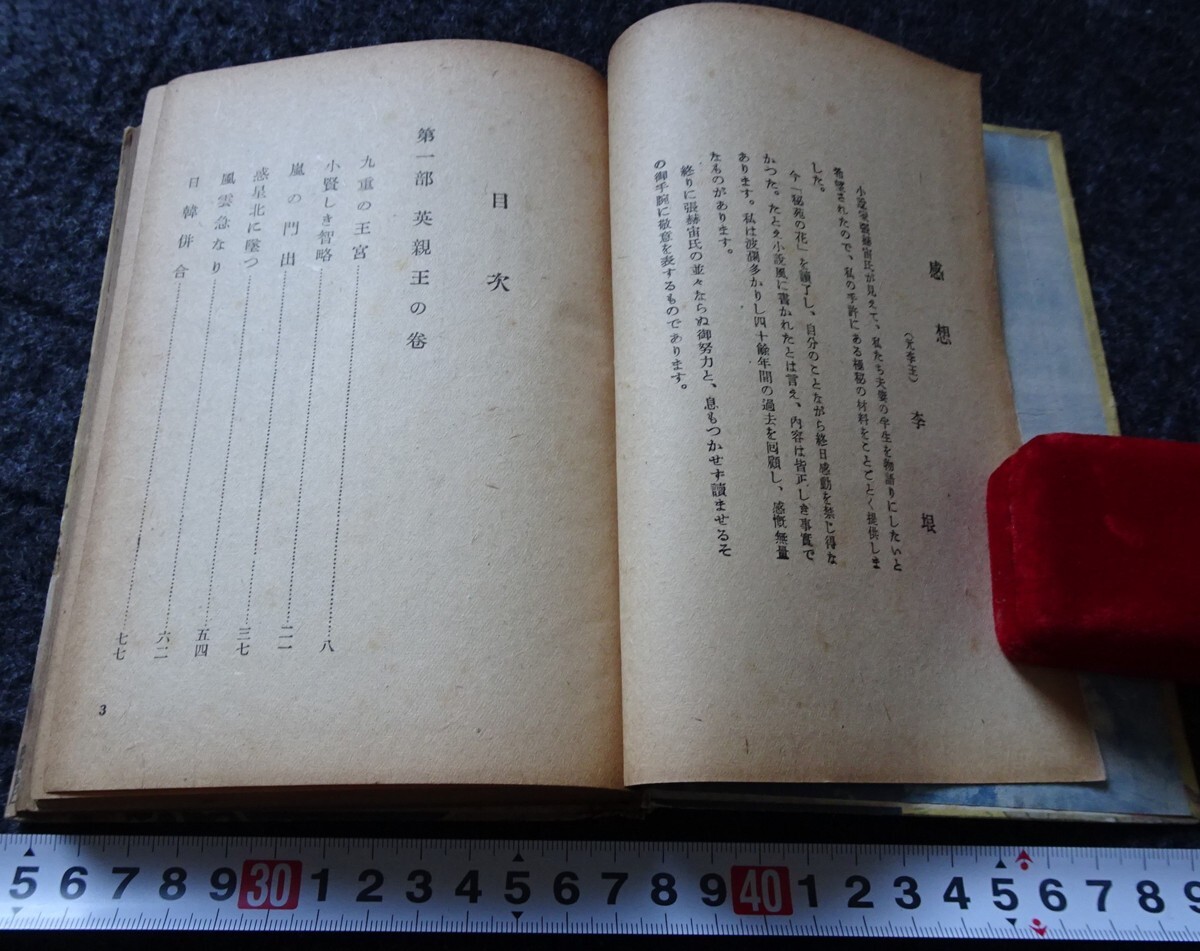 感想 李垠
(元李王)
小説家張赫宙氏が見えて、私たち夫妻の半生を物語りにしたいと
希望されたので、私の手許にある極秘の材料をことごとく提供しま
した。
今「秘苑の花」を讀了し、自分のことながら終日感動を禁じ得な
かつた。たとえ小説風に書かれたとは言え、內容は皆正しき事實で
あります。私は波瀾多かりし四十餘年間の過去を回顧し、感慨無量
なものがあります。
終りに張赫宙氏の並々ならぬ御努力と、息もつかせず讀ませるそ
の御手腕に敬意を表するものであります。
目次
第一部 英親王の卷
九重の王宮 八
小賢しき智略 二一
嵐の門出 三七
惑星北に墜つ 五四
風雲急なり 六二
日韓併合 七七
3
5 6 7 8 9 30 1 2 3 4 5 6 7 8 9 40 1 2 3 4 5 6 7 8 9